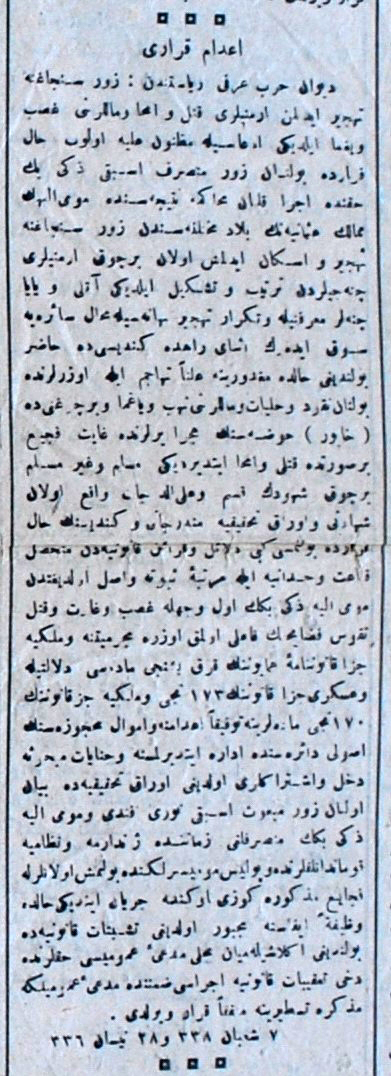 اعدام قراری
دیوان حرب عرفی ریاستندن : زور سنجاغنه
تهجیر ایدیلن ارمنیلری قتل و امحا ومالارینی غصب
ویغما ایلدیکی ادعاسیله مظنون علیه اولوب حال
فرارده بولنان زور متصرف اسبقی ذکی بك
حقنده اجرا قلنان محاکمه نتیجه‌سنده مومی‌الیهك
ممالك عثمانیه‌نك بلاد مختلفه‌سندن زور سنجاغنه
تهجیر و اسکان ایدلمش اولان برچوق ارمنیلری
چته‌جیلردن ترتیب و تشکیل ایلدیکی آتلی و یایا
چته‌لر معرفتیله وتکرار تهجیر بهانه‌سیله محال سائره‌یه
سوق ایده‌رك اثنای راهده کندیسی‌ده حاضر
بولندیغی حالده مغدورینه علناً تهاجم ایله اوزرلرنده
بولنان نقود وحلیات ومالارینی نهب ویاغما وبرچوغنی‌ده
( خابور ) حوضه‌سنك مجرا یرلرنده غایت فجیع
برصورتده قتل وامحا ایتدیردیکی مسلم وغیر مسلم
برچوق شهودك قسم وعلی‌الدرجات واقع اولان
شهادتی واوراق تحقیقیه مندرجاتی و کندیسنك حال
فرارده بولنمسی کبی دلائل وقرائن قانونیه‌دن متحصل
قناعت وجدانیه ایله مرتبهٔ ثبوته واصل اولدیغندن
مومی الیه ذکی بكك اول وجهله غصب وغارت وقتل
نفوس فضایحك فاعلی اولمق اوزره مجرمیتنه وملکیه
جزا قانوننامهٔ همایوننك قرق بشنجی ماده‌سی دلالتیله
وعسکری جزا قانوننك ١٧٣ نجی وملکیه جزا قانوننك
١٧٠ نجی ماده‌لرینه توفیقاً اعدامنه واموال محجوزه‌سنك
اصولی دائره‌سنده اداره ایتدیرلمسنه وجنایات مبحوثه
دخل واشتراکلری اولدیغی اوراق تحقیقیه‌ده بیان
اولنان زور مبعوث اسبقی نوری افندی ومومی الیه
ذکی بكك متصرفلغی زماننده ژاندارمه ونظامیه
قوماندانلقلرنده وپولیس قومیسرلکنده بولنمش اولانلرله
فجایع مذکوره کوزی اوکنده جریان ایتدیکی حالده
وظیفةً ایفاسنه مجبور اولدیغی تشبثات قانونیه‌ده
بولنمدیغی اکلاشیلان محلی مدعیٔ عمومیسی حقلرنده
دخی تعقیبات قانونیه اجراسی ضمننده مدعیٔ عمومیلکه
مذکره تسطیرینه متفقاً قرار ویرلدی .
٧ شعبان ٣٣٨ و ٢٨ نیسان ٣٣٦